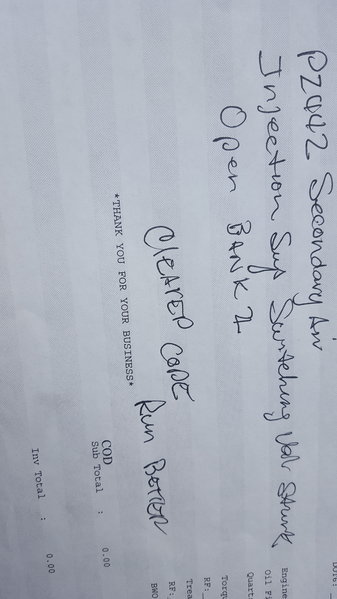 P2442 Secondary Air
Injection Sys Switching Valv Stuck
Open BANK 2
CLEARED CODE
Run BETTER
*THANK YOU FOR YOUR BUSINESS*
COD
Sub Total : 0.00
Inv Total : 0.00
Engine
Oil Fi
Quart
Torq
RF:
Trea
RF:
BWO